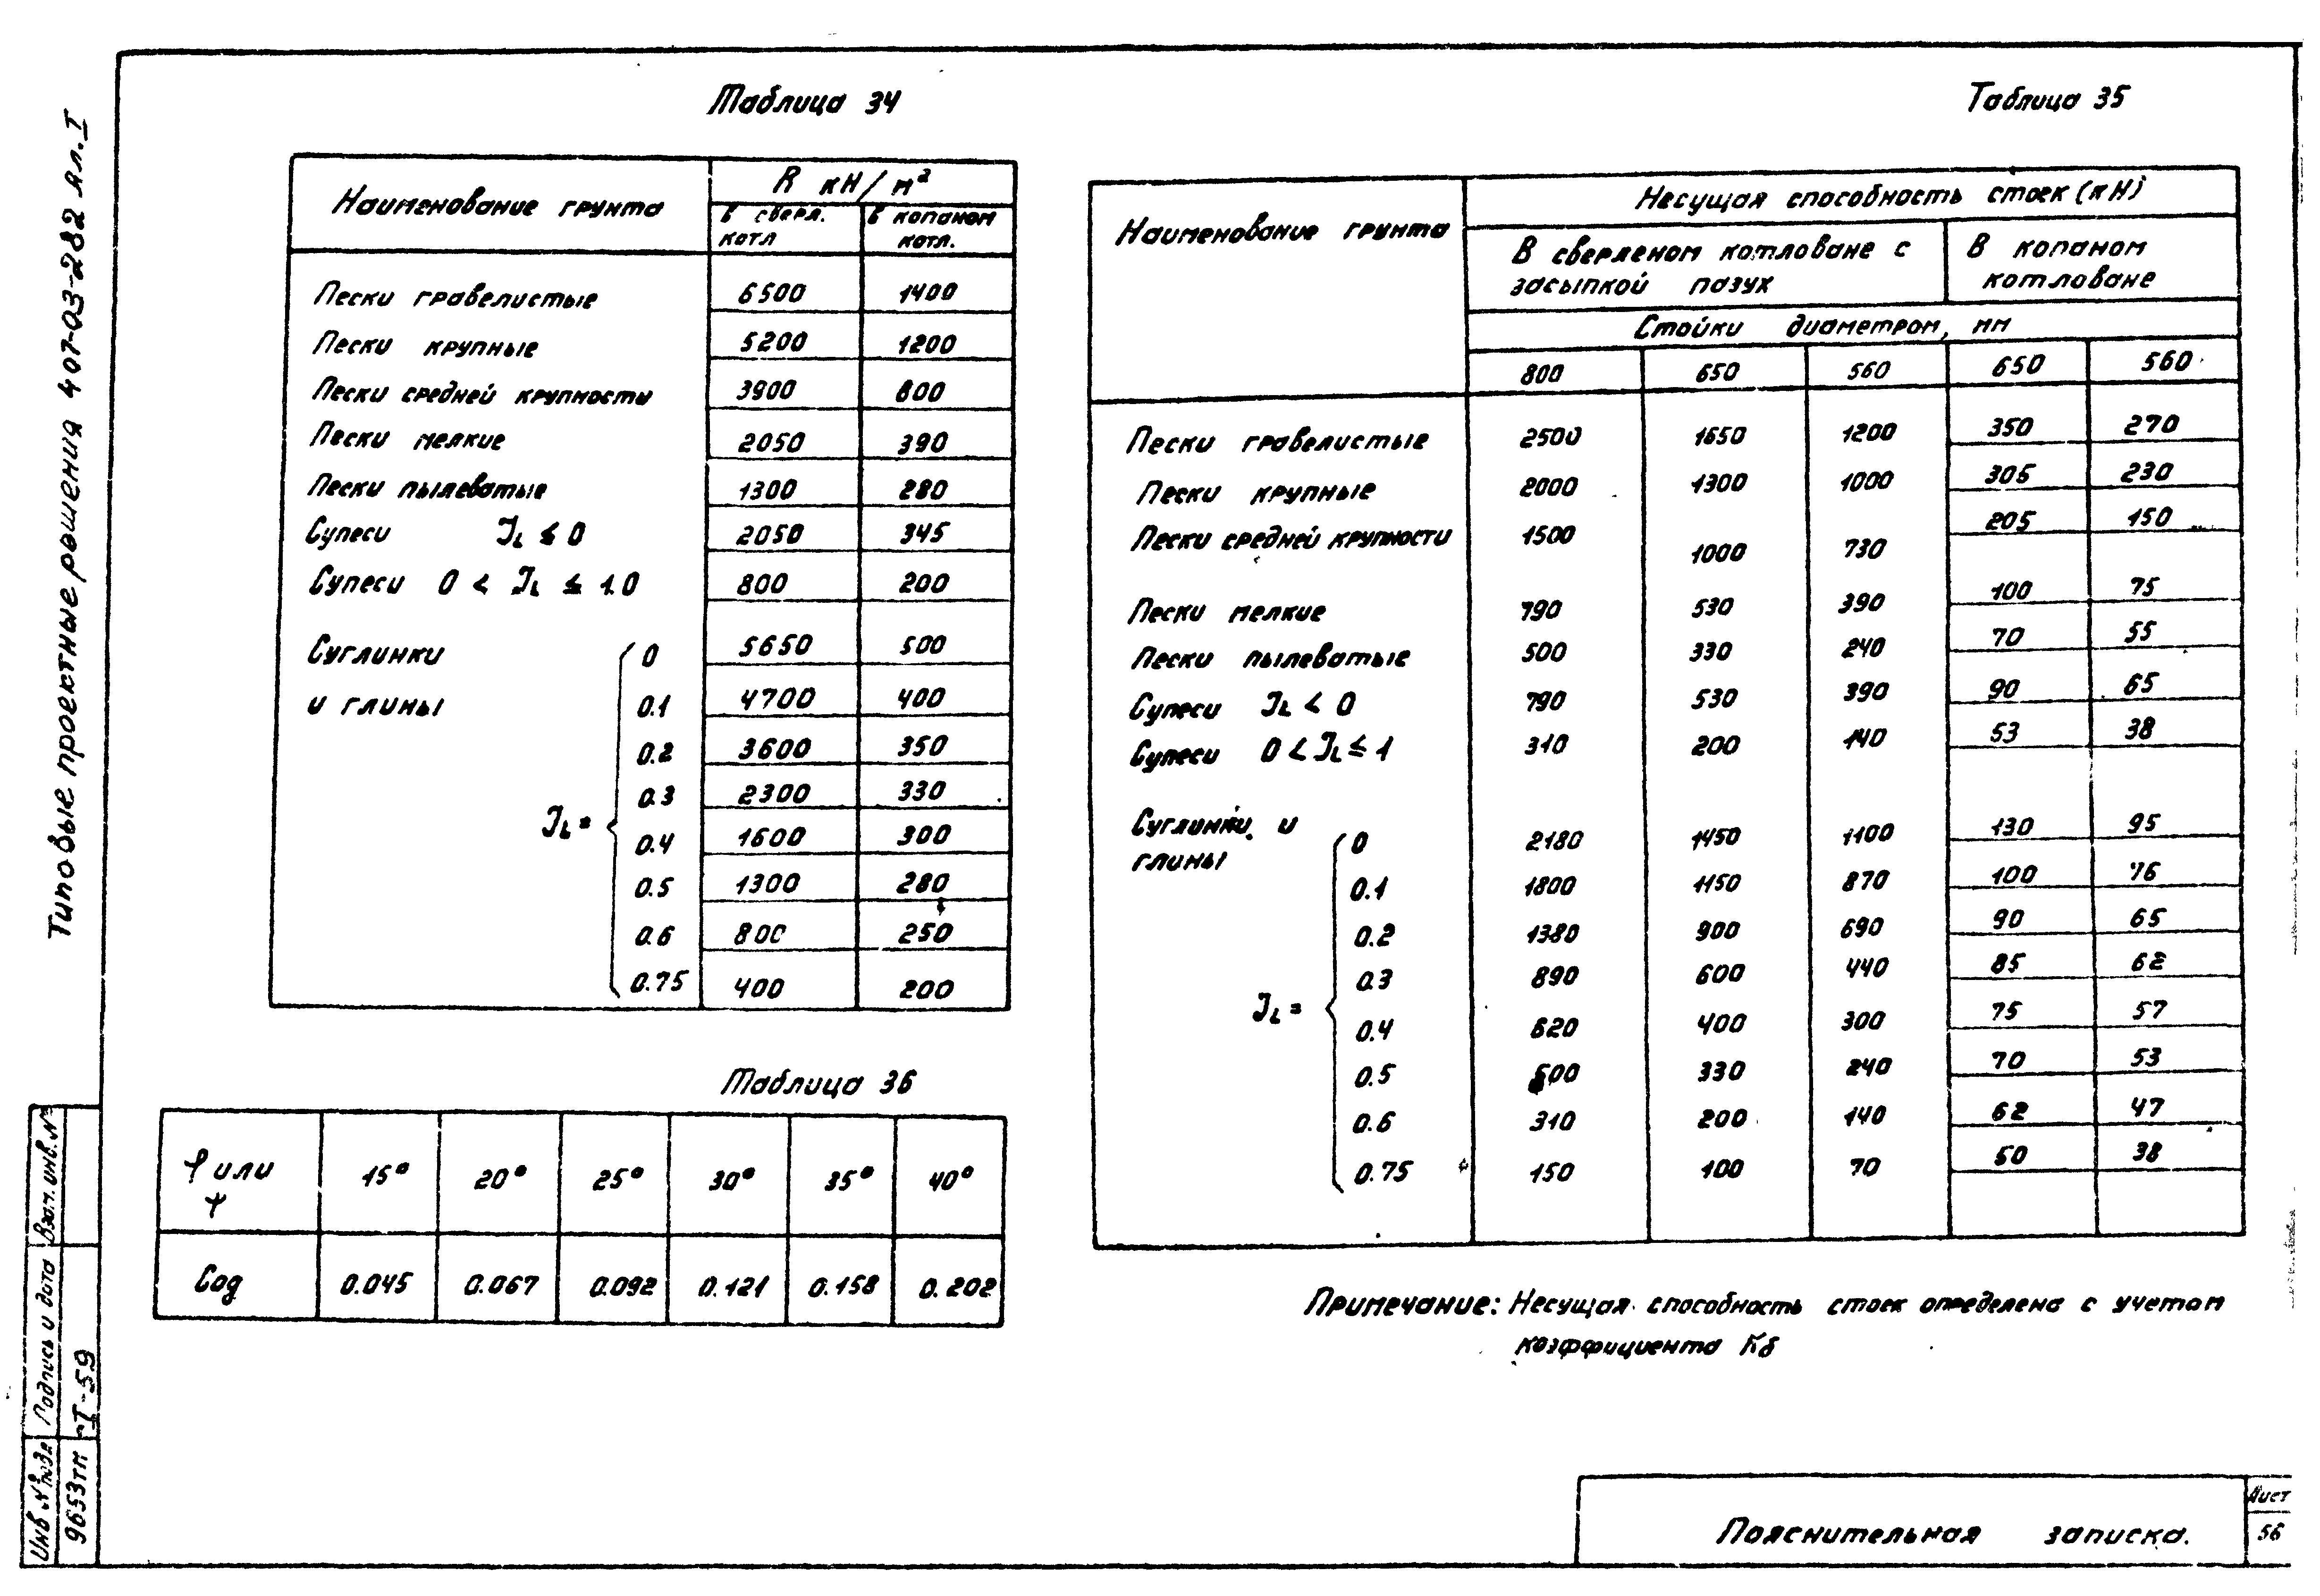 Типовые проектные решения 407-03-282 Ал. I
Таблица 34
Наименование грунта R кН/м²
в сверл. котл в копаном котл.
Пески гравелистые 6500 1400
Пески крупные 5200 1200
Пески средней крупности 3900 800
Пески мелкие 2050 390
Пески пылеватые 1300 280
Супеси JL ≤ 0 2050 345
Супеси 0 < JL ≤ 1.0 800 200
Суглинки 0 5650 500
и глины 0.1 4700 400
0.2 3600 350
0.3 2300 330
JL =
0.4 1600 300
0.5 1300 280
0.6 800 250
0.75 400 200
Таблица 36
φ или ψ 15° 20° 25° 30° 35° 40°
Cод 0.045 0.067 0.092 0.121 0.158 0.202
Таблица 35
Наименование грунта Несущая способность стоек (кН)
В сверленом котловане с засыпкой пазух В копаном котловане
Стойки диаметром, мм
800 650 560 650 560
Пески гравелистые 2500 1650 1200 350 270
Пески крупные 2000 1300 1000 305 230
Пески средней крупности 1500 1000 730 205 150
Пески мелкие 790 530 390 100 75
Пески пылеватые 500 330 240 70 55
Супеси JL < 0 790 530 390 90 65
Супеси 0 < JL ≤ 1 310 200 140 53 38
Суглинки и
глины
0 2180 1450 1100 130 95
0.1 1800 1150 870 100 76
0.2 1380 900 690 90 65
0.3 890 600 440 85 62
JL =
0.4 620 400 300 75 57
0.5 500 330 240 70 53
0.6 310 200 140 62 47
0.75 150 100 70 50 38
Примечание: Несущая способность стоек определена с учетом
коэффициента Кб
Инв № подл Подпись и дата Взам. инв. №
9653тм тI-59
Пояснительная записка.
Лист
56